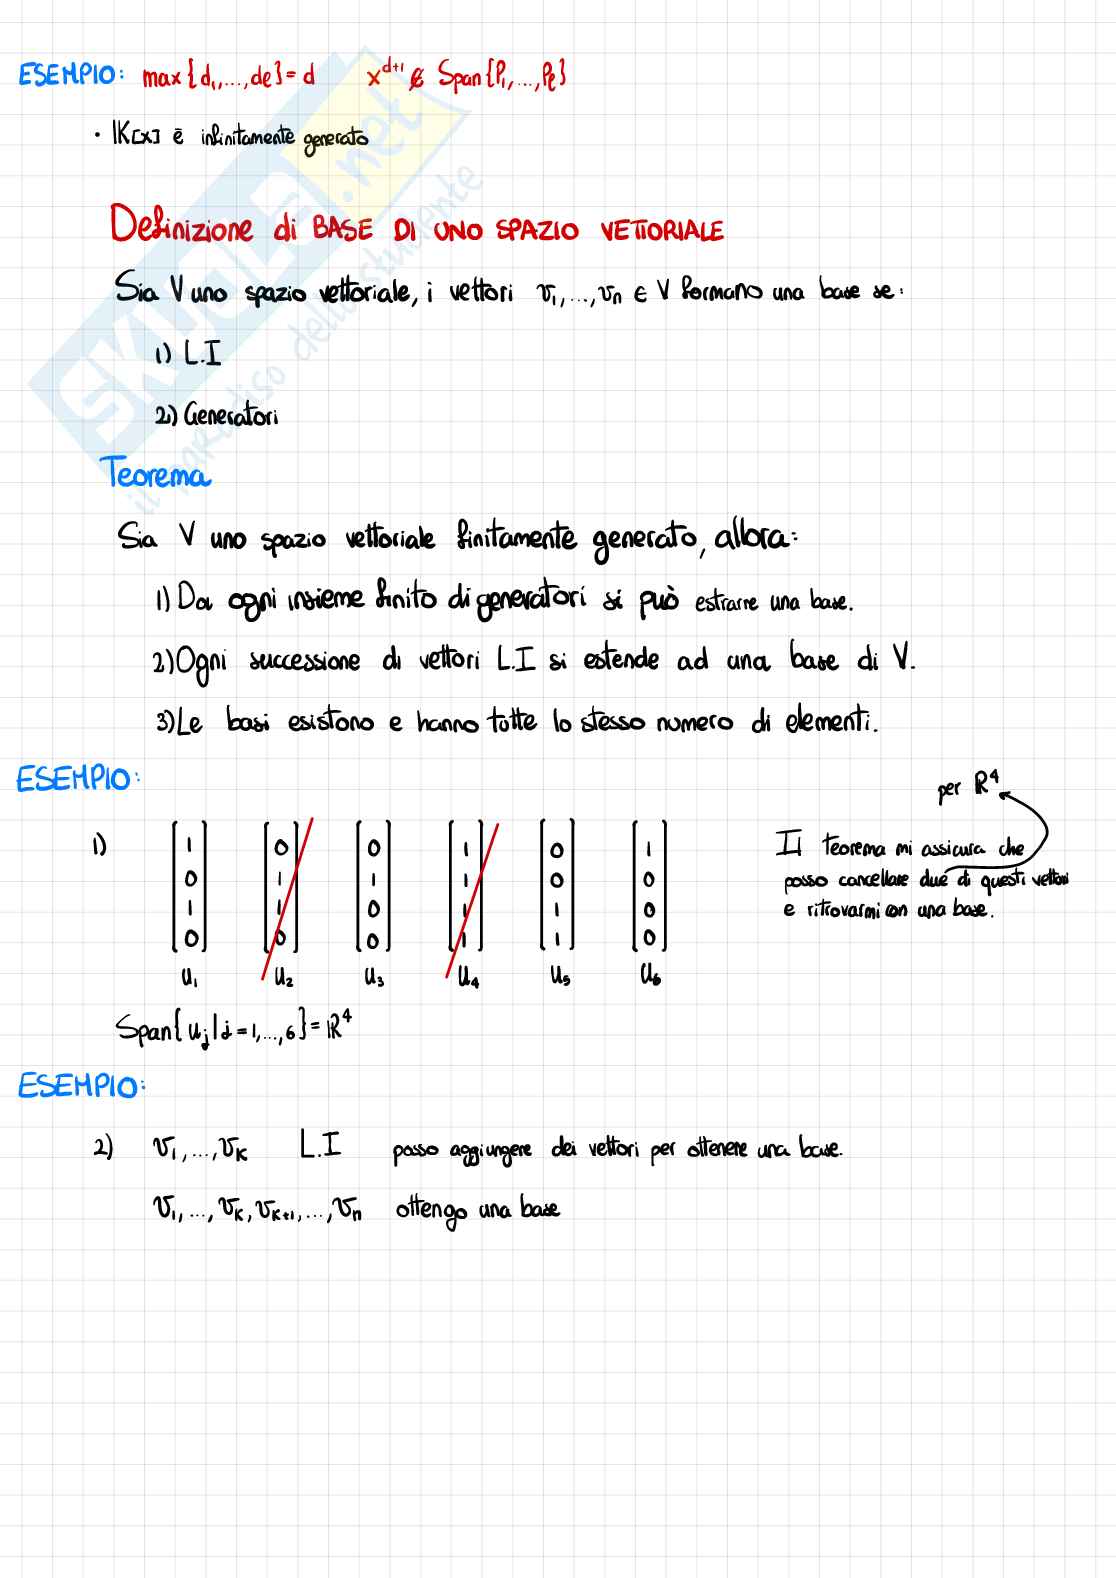 ESEMPIO: max{d₁,...,dℓ}=d   x^{d+1} ∉ Span{P₁,...,Pℓ}
· |K[x] è infinitamente generato
Definizione di BASE DI UNO SPAZIO VETTORIALE
Sia V uno spazio vettoriale, i vettori v₁,...,vₙ ∈ V formano una base se:
1) L.I
2) Generatori
Teorema
Sia V uno spazio vettoriale finitamente generato, allora:
1) Da ogni insieme finito di generatori si può estrarre una base.
2) Ogni successione di vettori L.I si estende ad una base di V.
3) Le basi esistono e hanno tutte lo stesso numero di elementi.
ESEMPIO:
per ℝ⁴
1) [1 0 1 0] [0 1 1 0] [0 1 0 0] [1 1 1 1] [0 0 1 1] [1 0 0 0]
u₁ u₂ u₃ u₄ u₅ u₆
Il teorema mi assicura che
posso cancellare due di questi vettori
e ritrovarmi con una base.
Span{uⱼ|j=1,...,6}=ℝ⁴
ESEMPIO:
2) v₁,...,vₖ   L.I   posso aggiungere dei vettori per ottenere una base.
v₁,...,vₖ,vₖ₊₁,...,vₙ ottengo una base
SKUOLA.net
il paradiso dello studente